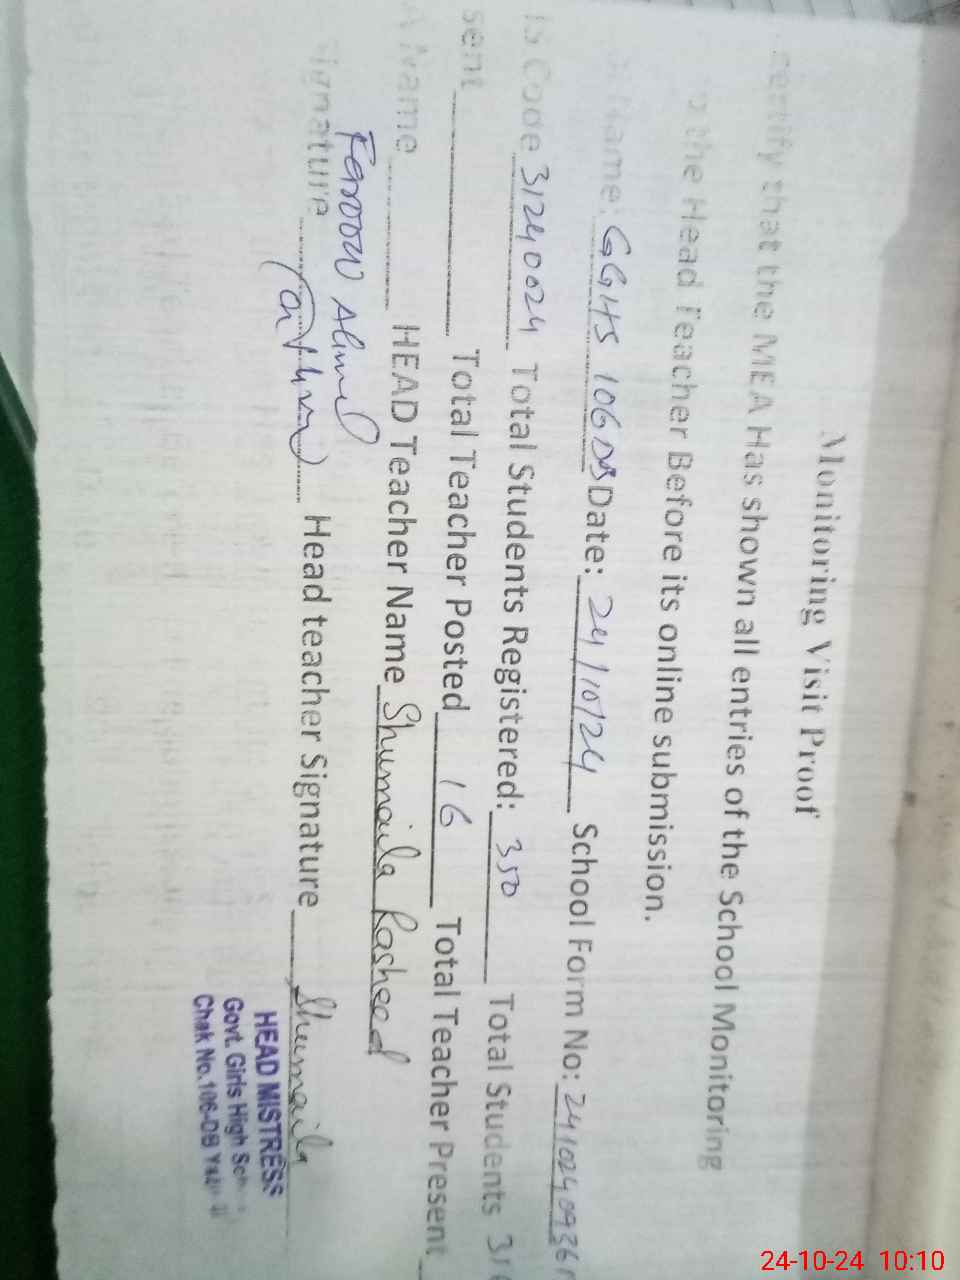 Monitoring Visit Proof
certify that the MEA Has shown all entries of the School Monitoring
the Head Teacher Before its online submission.
Name: GGHS 106 DB Date: 24/10/24 School Form No:
is Code 31240024 Total Students Registered: 350 Total Students
sent Total Teacher Posted 16 Total Teacher Present
A Name HEAD Teacher Name Shumaila Rasheed
Ahmed
signature Head teacher Signature Shumaila
HEAD MISTRESS
Govt. Girls High
Chak No.106-DB
24-10-24 10:10